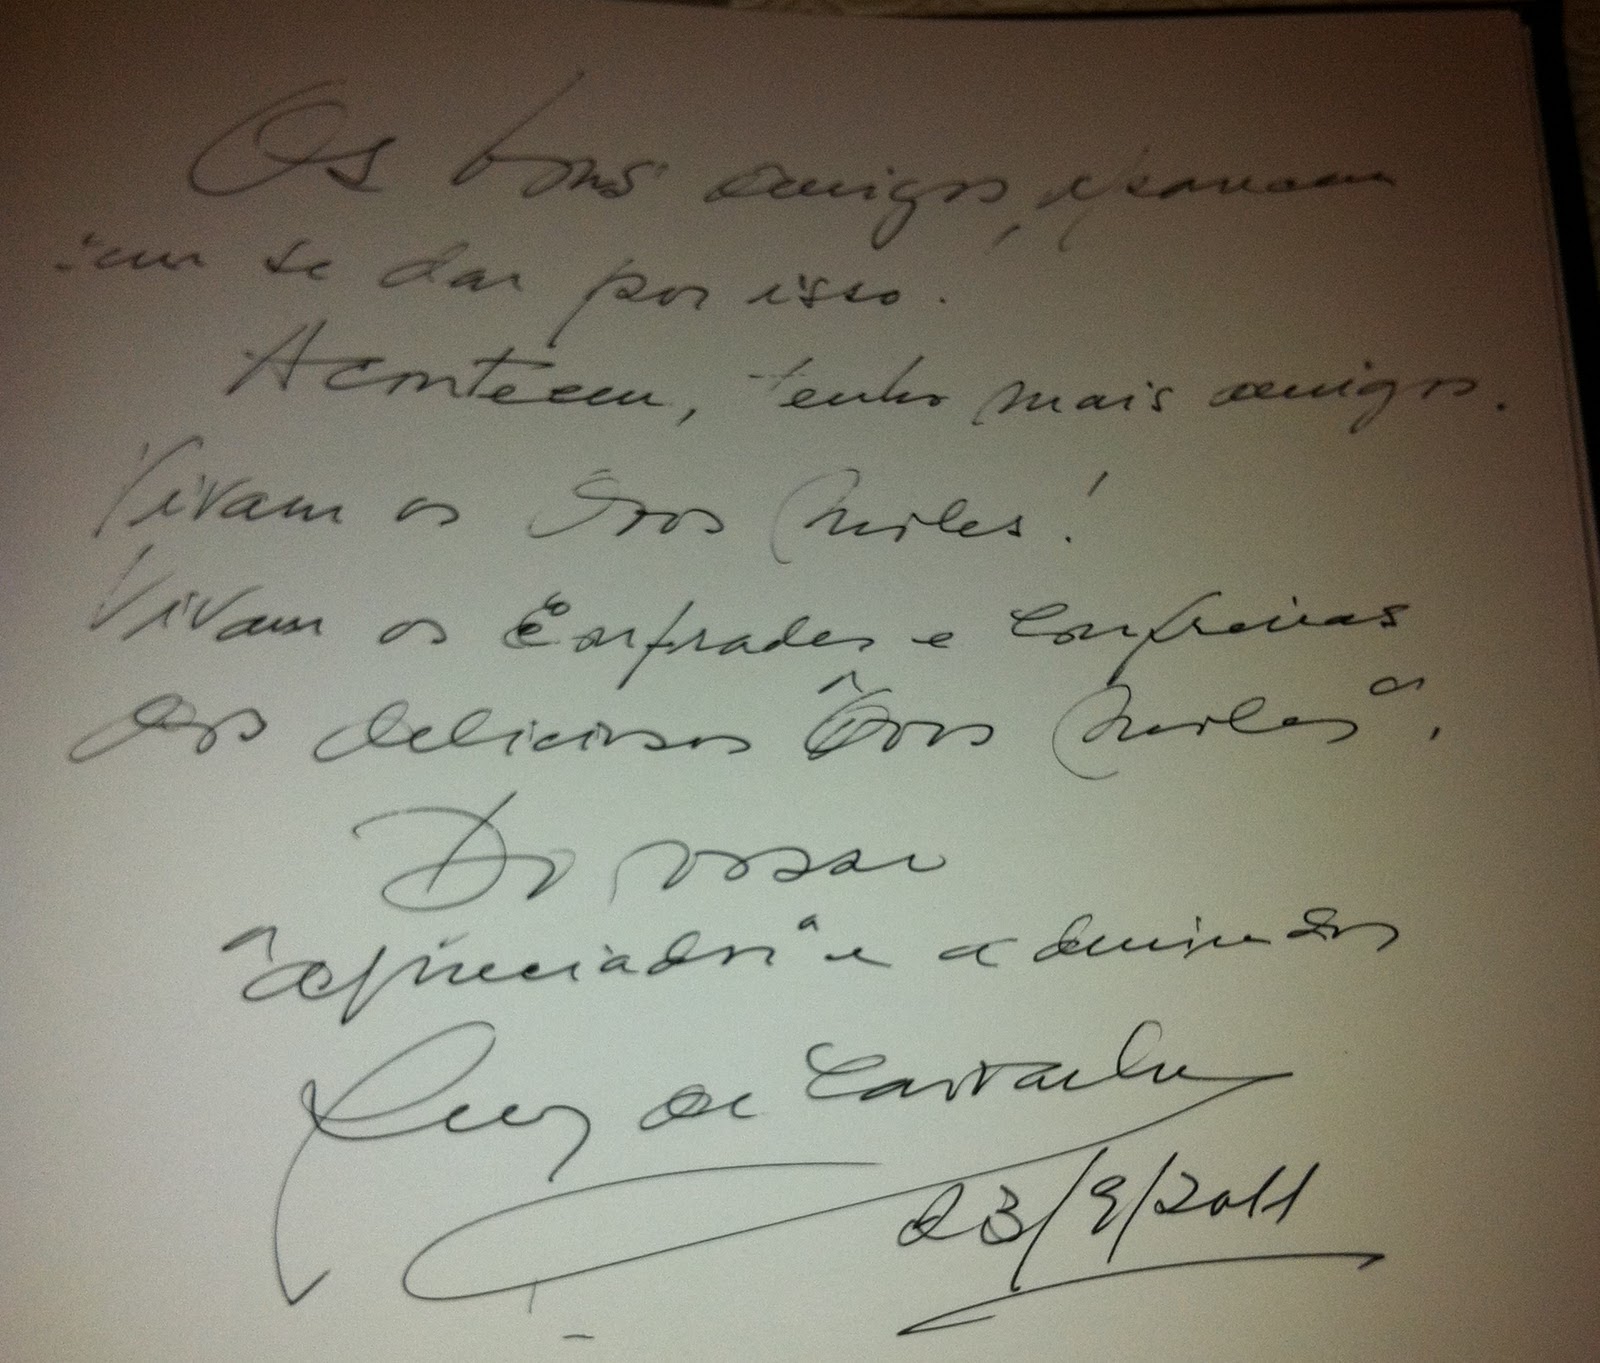 Os bons amigos, aparecem
sem se dar por isso.
Acontecem, tenho mais amigos.
Vivam os Ovos Moles!
Vivam os Confrades e Confreiras
dos deliciosos "Ovos Moles".
Do vosso
"apreciador" e admirador
de Carvalho
23/9/2011